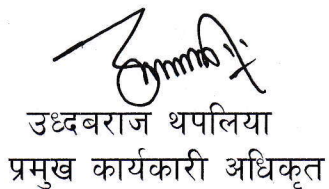 उध्दबराज थपलिया
प्रमुख कार्यकारी अधिकृत